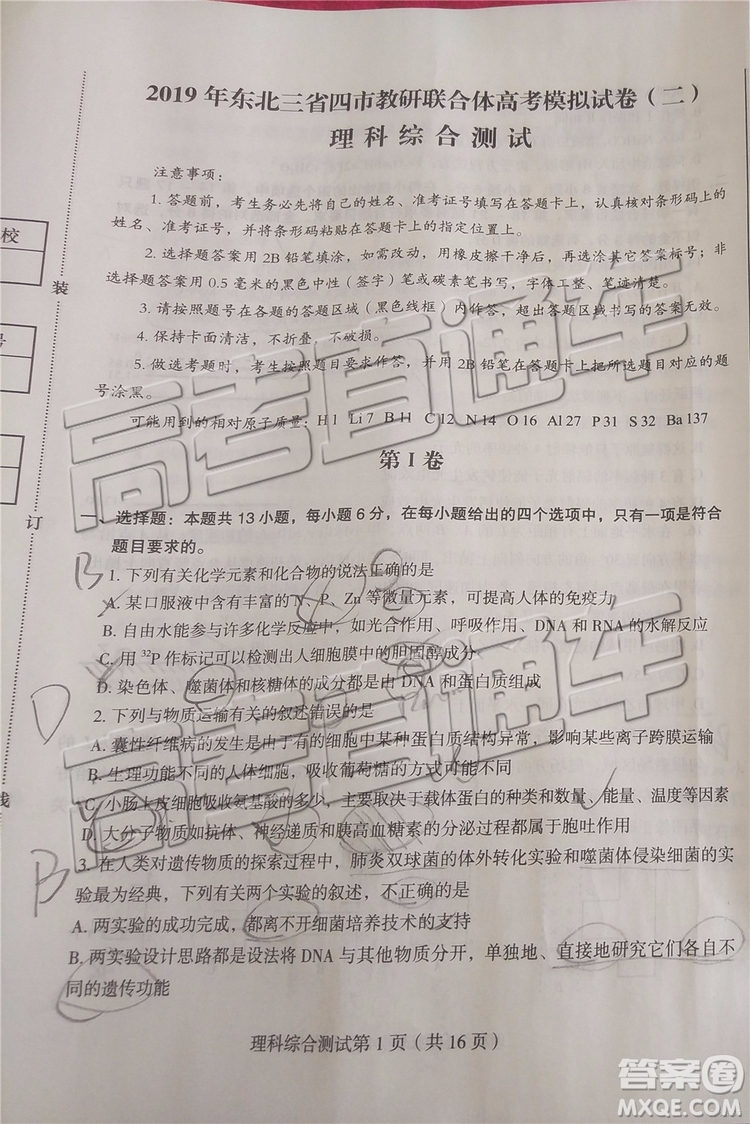 2019 年东北三省四市教研联合体高考模拟试卷（二）
理科综合测试
注意事项：
1. 答题前，考生务必先将自己的姓名、准考证号填写在答题卡上，认真核对条形码上的
姓名、准考证号，并将条形码粘贴在答题卡上的指定位置上。
2. 选择题答案用 2B 铅笔填涂，如需改动，用橡皮擦干净后，再选涂其它答案标号；非
选择题答案用 0.5 毫米的黑色中性（签字）笔或碳素笔书写，字体工整、笔迹清楚。
3. 请按照题号在各题的答题区域（黑色线框）内作答，超出答题区域书写的答案无效。
4. 保持卡面清洁，不折叠，不破损。
5. 做选考题时，考生按照题目要求作答，并用 2B 铅笔在答题卡上把所选题目对应的题
号涂黑。
可能用到的相对原子质量：H 1 Li 7 B 11 C 12 N 14 O 16 Al 27 P 31 S 32 Ba 137
第 I 卷
一、选择题：本题共 13 小题，每小题 6 分，在每小题给出的四个选项中，只有一项是符合
题目要求的。
B
1. 下列有关化学元素和化合物的说法正确的是
A. 某口服液中含有丰富的 N、P、Zn 等微量元素，可提高人体的免疫力
B. 自由水能参与许多化学反应中，如光合作用、呼吸作用、DNA 和 RNA 的水解反应
C. 用 ³²P 作标记可以检测出人细胞膜中的胆固醇成分
D. 染色体、噬菌体和核糖体的成分都是由 DNA 和蛋白质组成
D
2. 下列与物质运输有关的叙述错误的是
A. 囊性纤维病的发生是由于有的细胞中某种蛋白质结构异常，影响某些离子跨膜运输
B. 生理功能不同的人体细胞，吸收葡萄糖的方式可能不同
C. 小肠上皮细胞吸收氨基酸的多少，主要取决于载体蛋白的种类和数量、能量、温度等因素
D. 大分子物质如抗体、神经递质和胰高血糖素的分泌过程都属于胞吐作用
B
3. 在人类对遗传物质的探索过程中，肺炎双球菌的体外转化实验和噬菌体侵染细菌的实
验最为经典，下列有关两个实验的叙述，不正确的是
A. 两实验的成功完成，都离不开细菌培养技术的支持
B. 两实验设计思路都是设法将 DNA 与其他物质分开，单独地、直接地研究它们各自不
同的遗传功能
理科综合测试第 1 页（共 16 页）
校
号
装
订
线
高考直通车
高考直通车
答案圈
MXQE.COM